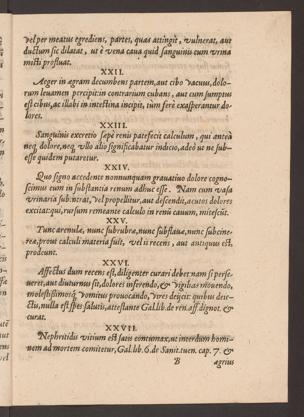 vel per meatus egrediens, partes, quas attingit, vulnerat, aut
ductum sic dilatat, ut è vena caua quid sanguinis cum vrina
misti profluat.
XXII.
Aeger in agram decumbens partem, aut cibo vacuus, dolo-
rum leuamen percipit: in contrarium cubans, aut cum sumptus
est cibus, ac illabi in intestina incipit, tum ferè exasperantur do-
lores.
XXIII.
Sanguinis excretio sæpè renis patefecit calculum, qui anteà
neq; dolore, neq; vllo alio significabatur indicio, adeò ut ne sub-
esse quidem putaretur.
XXIV.
Quo signo accedente nonnunquam grauatiuo dolore cogno-
scimus eum in substantia renum adhuc esse. Nam cum vasa
vrinaria subintrat, vel propellitur, aut descendit, acutos dolores
excitat: qui, rursum remeante calculo in renū cauum, mitescūt.
XXV.
Tunc arenulæ, nunc subrubræ, nunc subflauæ, nunc subcine-
reæ, prout calculi materia fuit, vel is recens, aut antiquus est
prodeunt.
XXVI.
Affectus dum recens est, diligenter curari debet: nam si perse-
ueret, aut diuturnus sit, dolores inferendo, & vigilias mouendo,
molestissimóq; vomitus prouocando, vires deijcit: quibus deie-
ctis, nulla est spes salutis, attestante Gal. lib. de ren. aff. dignot. &
curat.
XXVII.
Nephritidis vitium est satis contumax, ut interdum homi-
nem ad mortem comitetur, Gal. lib. 6. de Sanit. tuen. cap. 7. &
B agrius